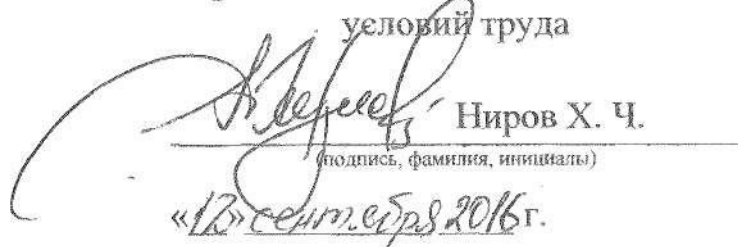 условий труда
Ниров Х. Ч.
(подпись, фамилия, инициалы)
«12» сентября 2016 г.